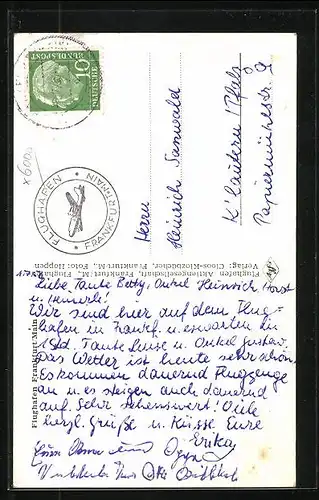 10
DEUTSCHE
BUNDESPOST
FLUGHAFEN
FRANKFURT-MAIN
x600a
Herrn
Heinrich Sannwald
K'lautern / Pfalz
Papiermühlestr. 9
Flughafen Aktiengesellschaft, Frankfurt/M., Flughafen
Verlag: Cloos-Kiozbücher, Frankfurt-M., Foto: Hoppen
Flughafen Frankfurt-Main
Liebe Tante Betty, Onkel Heinrich, Horst
u. Hennerle!
Wir sind hier auf dem Flug-
hafen in Frankf. u. erwarten in
1 Std. Tante Luise u. Onkel Gustav.
Das Wetter ist heute sehr schön.
Es kommen dauernd Flugzeuge
an u. es steigen auch dauernd
auf. Sehr sehenswert! Viele
herzl. Grüße u. Küsse Eure
Erika
Eure Oma und Opa